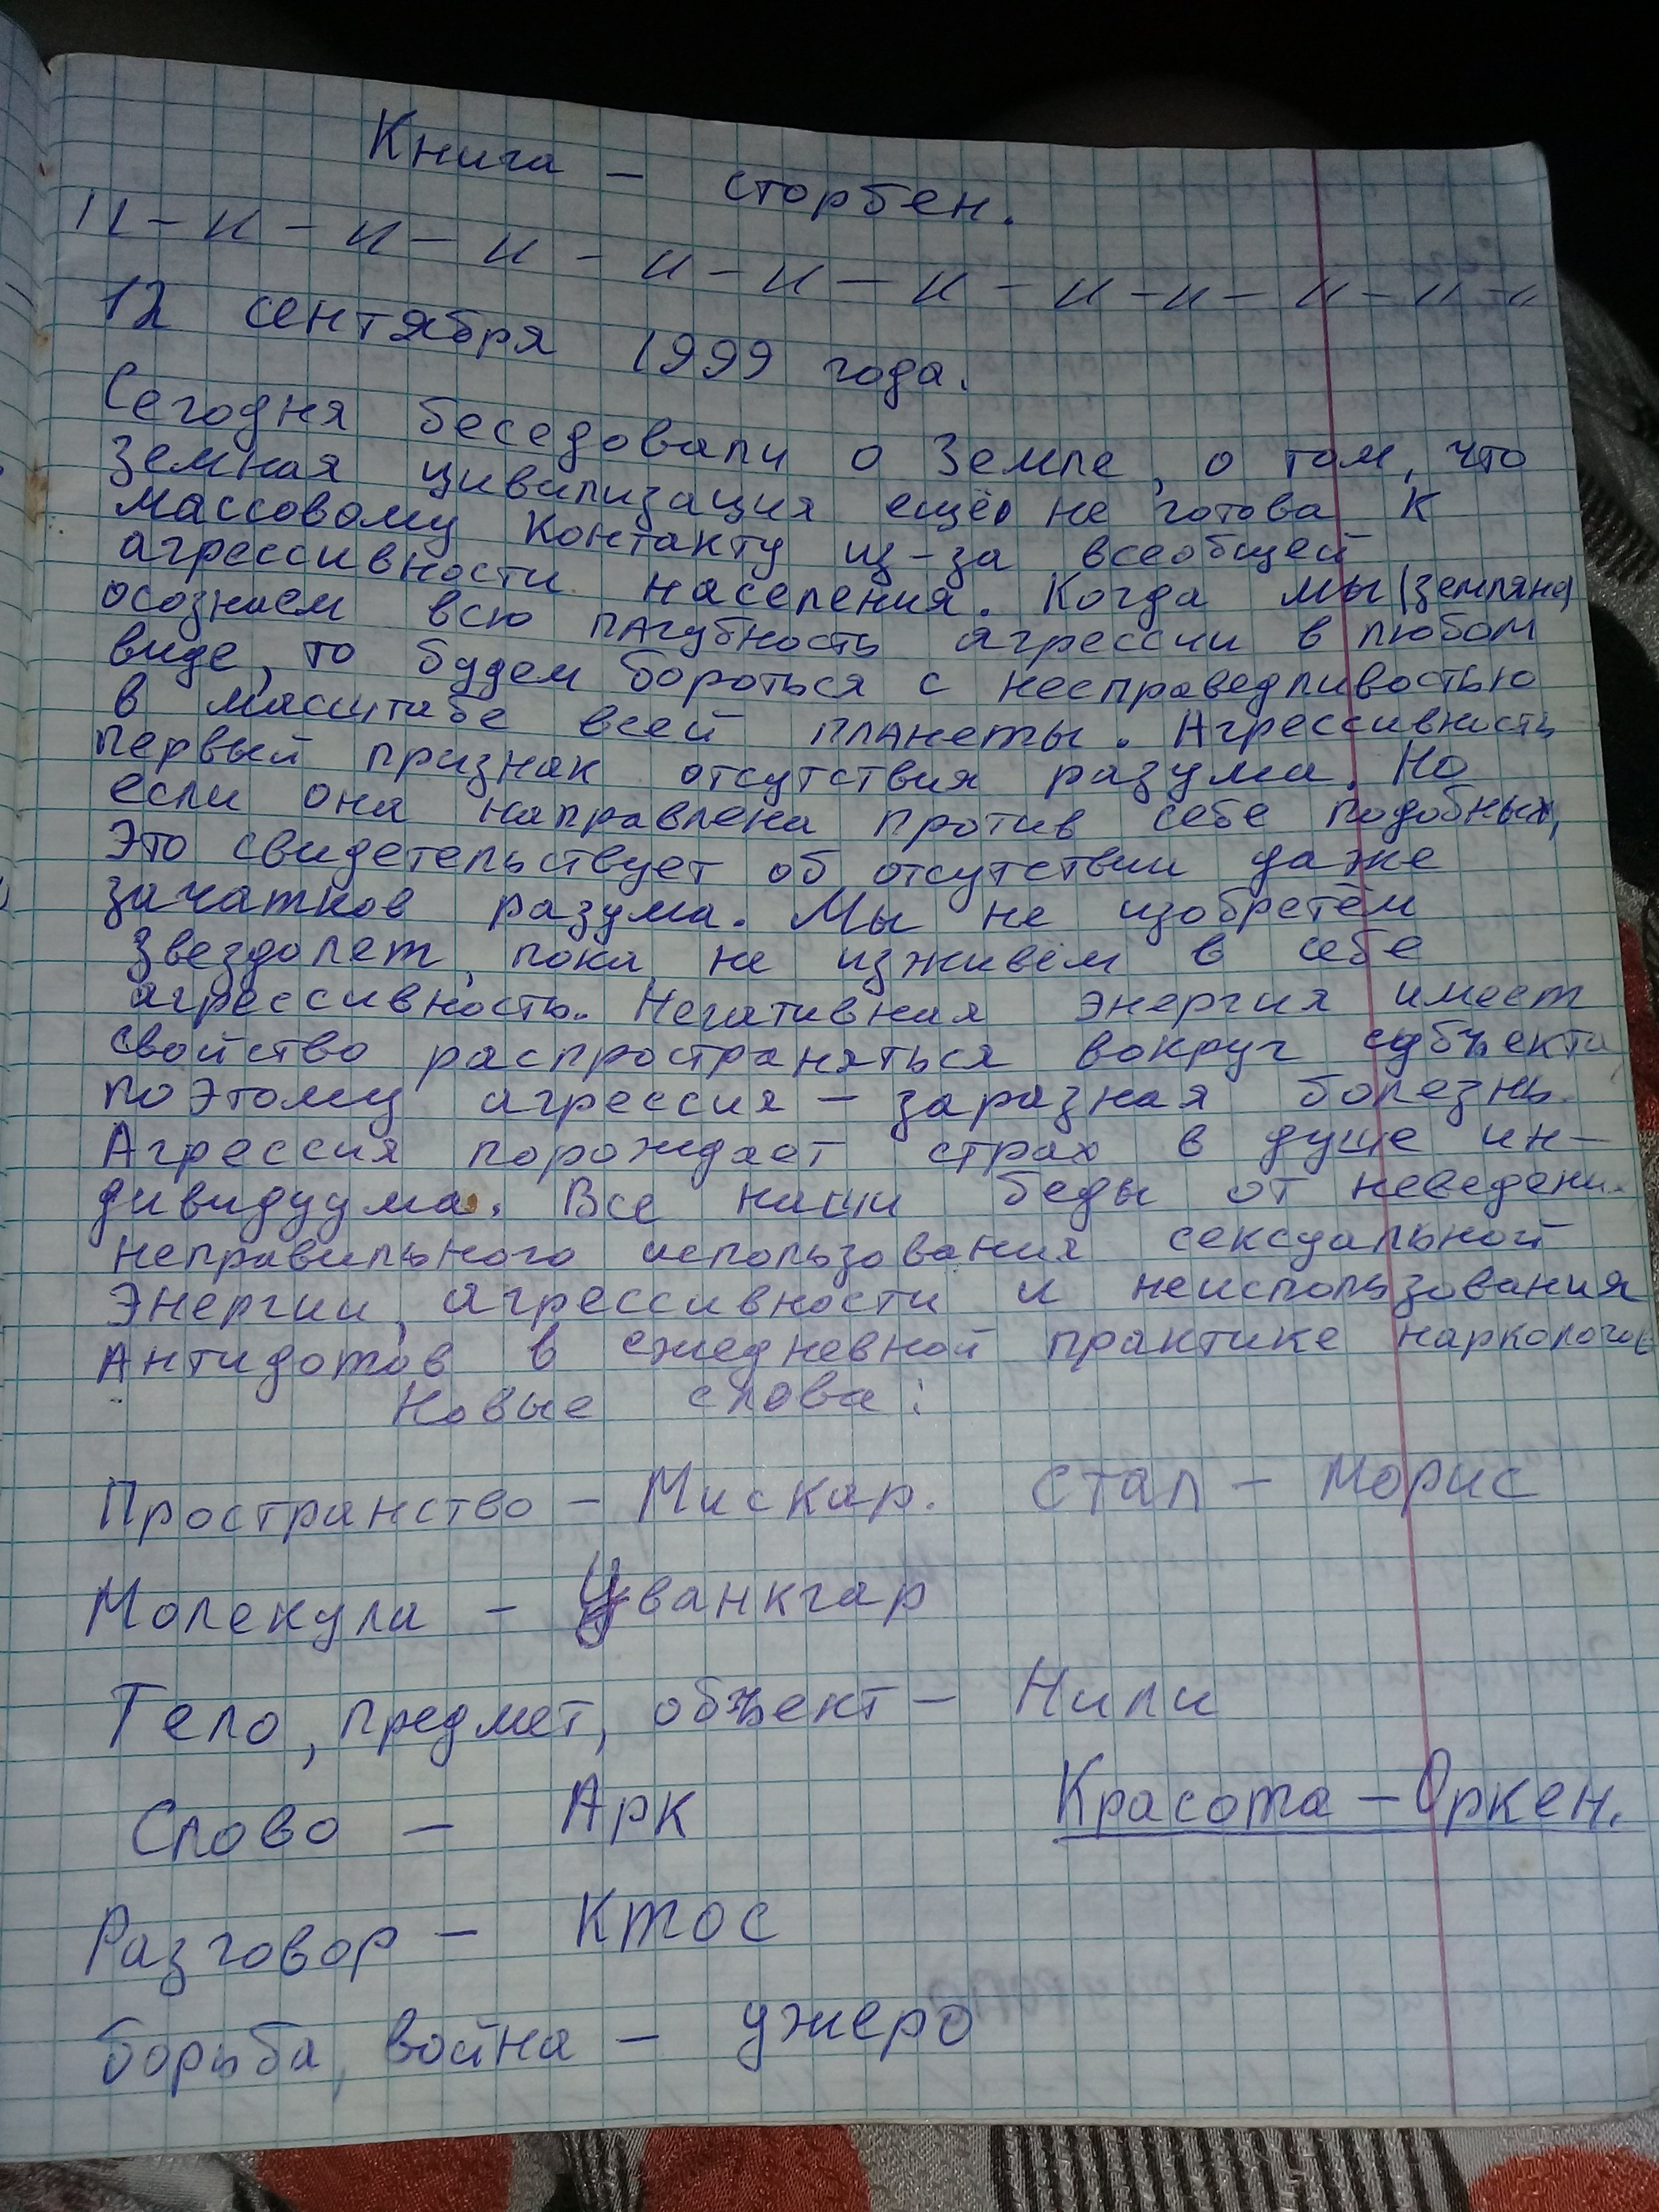 Книга – сторбен.
12 сентября 1999 года.
Сегодня беседовали о Земле, о том, что
Земная цивилизация ещё не готова к
массовому контакту из-за всеобщей
агрессивности населения. Когда мы (земляне)
осознаем всю пагубность агрессии в любом
виде, то будем бороться с несправедливостью
в масштабе всей планеты. Агрессивность
первый признак отсутствия разума. Но
если она направлена против себе подобных,
Это свидетельствует об отсутствии даже
зачатков разума. Мы не изобретём
Звездолет, пока не изживём в себе
агрессивность. Негативная энергия имеет
свойство распространяться вокруг субъекта,
поэтому агрессия – заразная болезнь.
Агрессия порождает страх в душе ин-
дивидуума. Все наши беды от
неправильного использования сексуальной
Энергии, агрессивности и неиспользования
Антидотов в ежедневной практике
Новые слова:
Пространство – Мискар. Стал – Морис
Молекула – Цванкгар
Тело, предмет, объект – Нили
Слово – Арк
Красота – Оркен.
Разговор – Ктос
борьба, война – уджеро